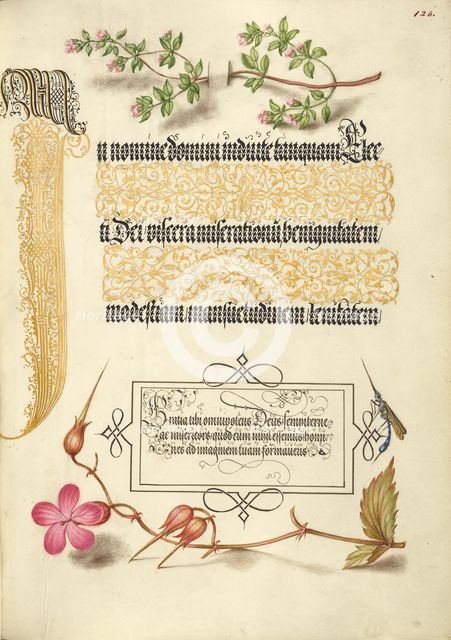 126.
In nomine domini induite tanquam Elec
ti Dei viscera miserationū, benignitatem
modestiam, mansuetudinem, lenitatem
Gratia tibi omnipotens Deus sempiterne
ac misericors, quod cum nihil essemus homi
nes ad imaginem tuam formaueris